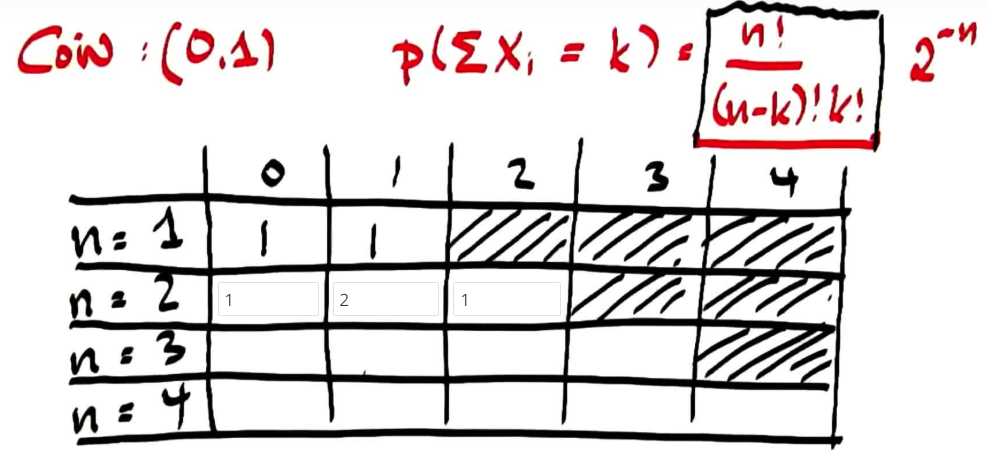 Coin : (0,1) p(Σ Xi = k) = n! / (n-k)! k! 2^-n
0 1 2 3 4
n = 1 1 1
n = 2 1 2 1
n = 3
n = 4